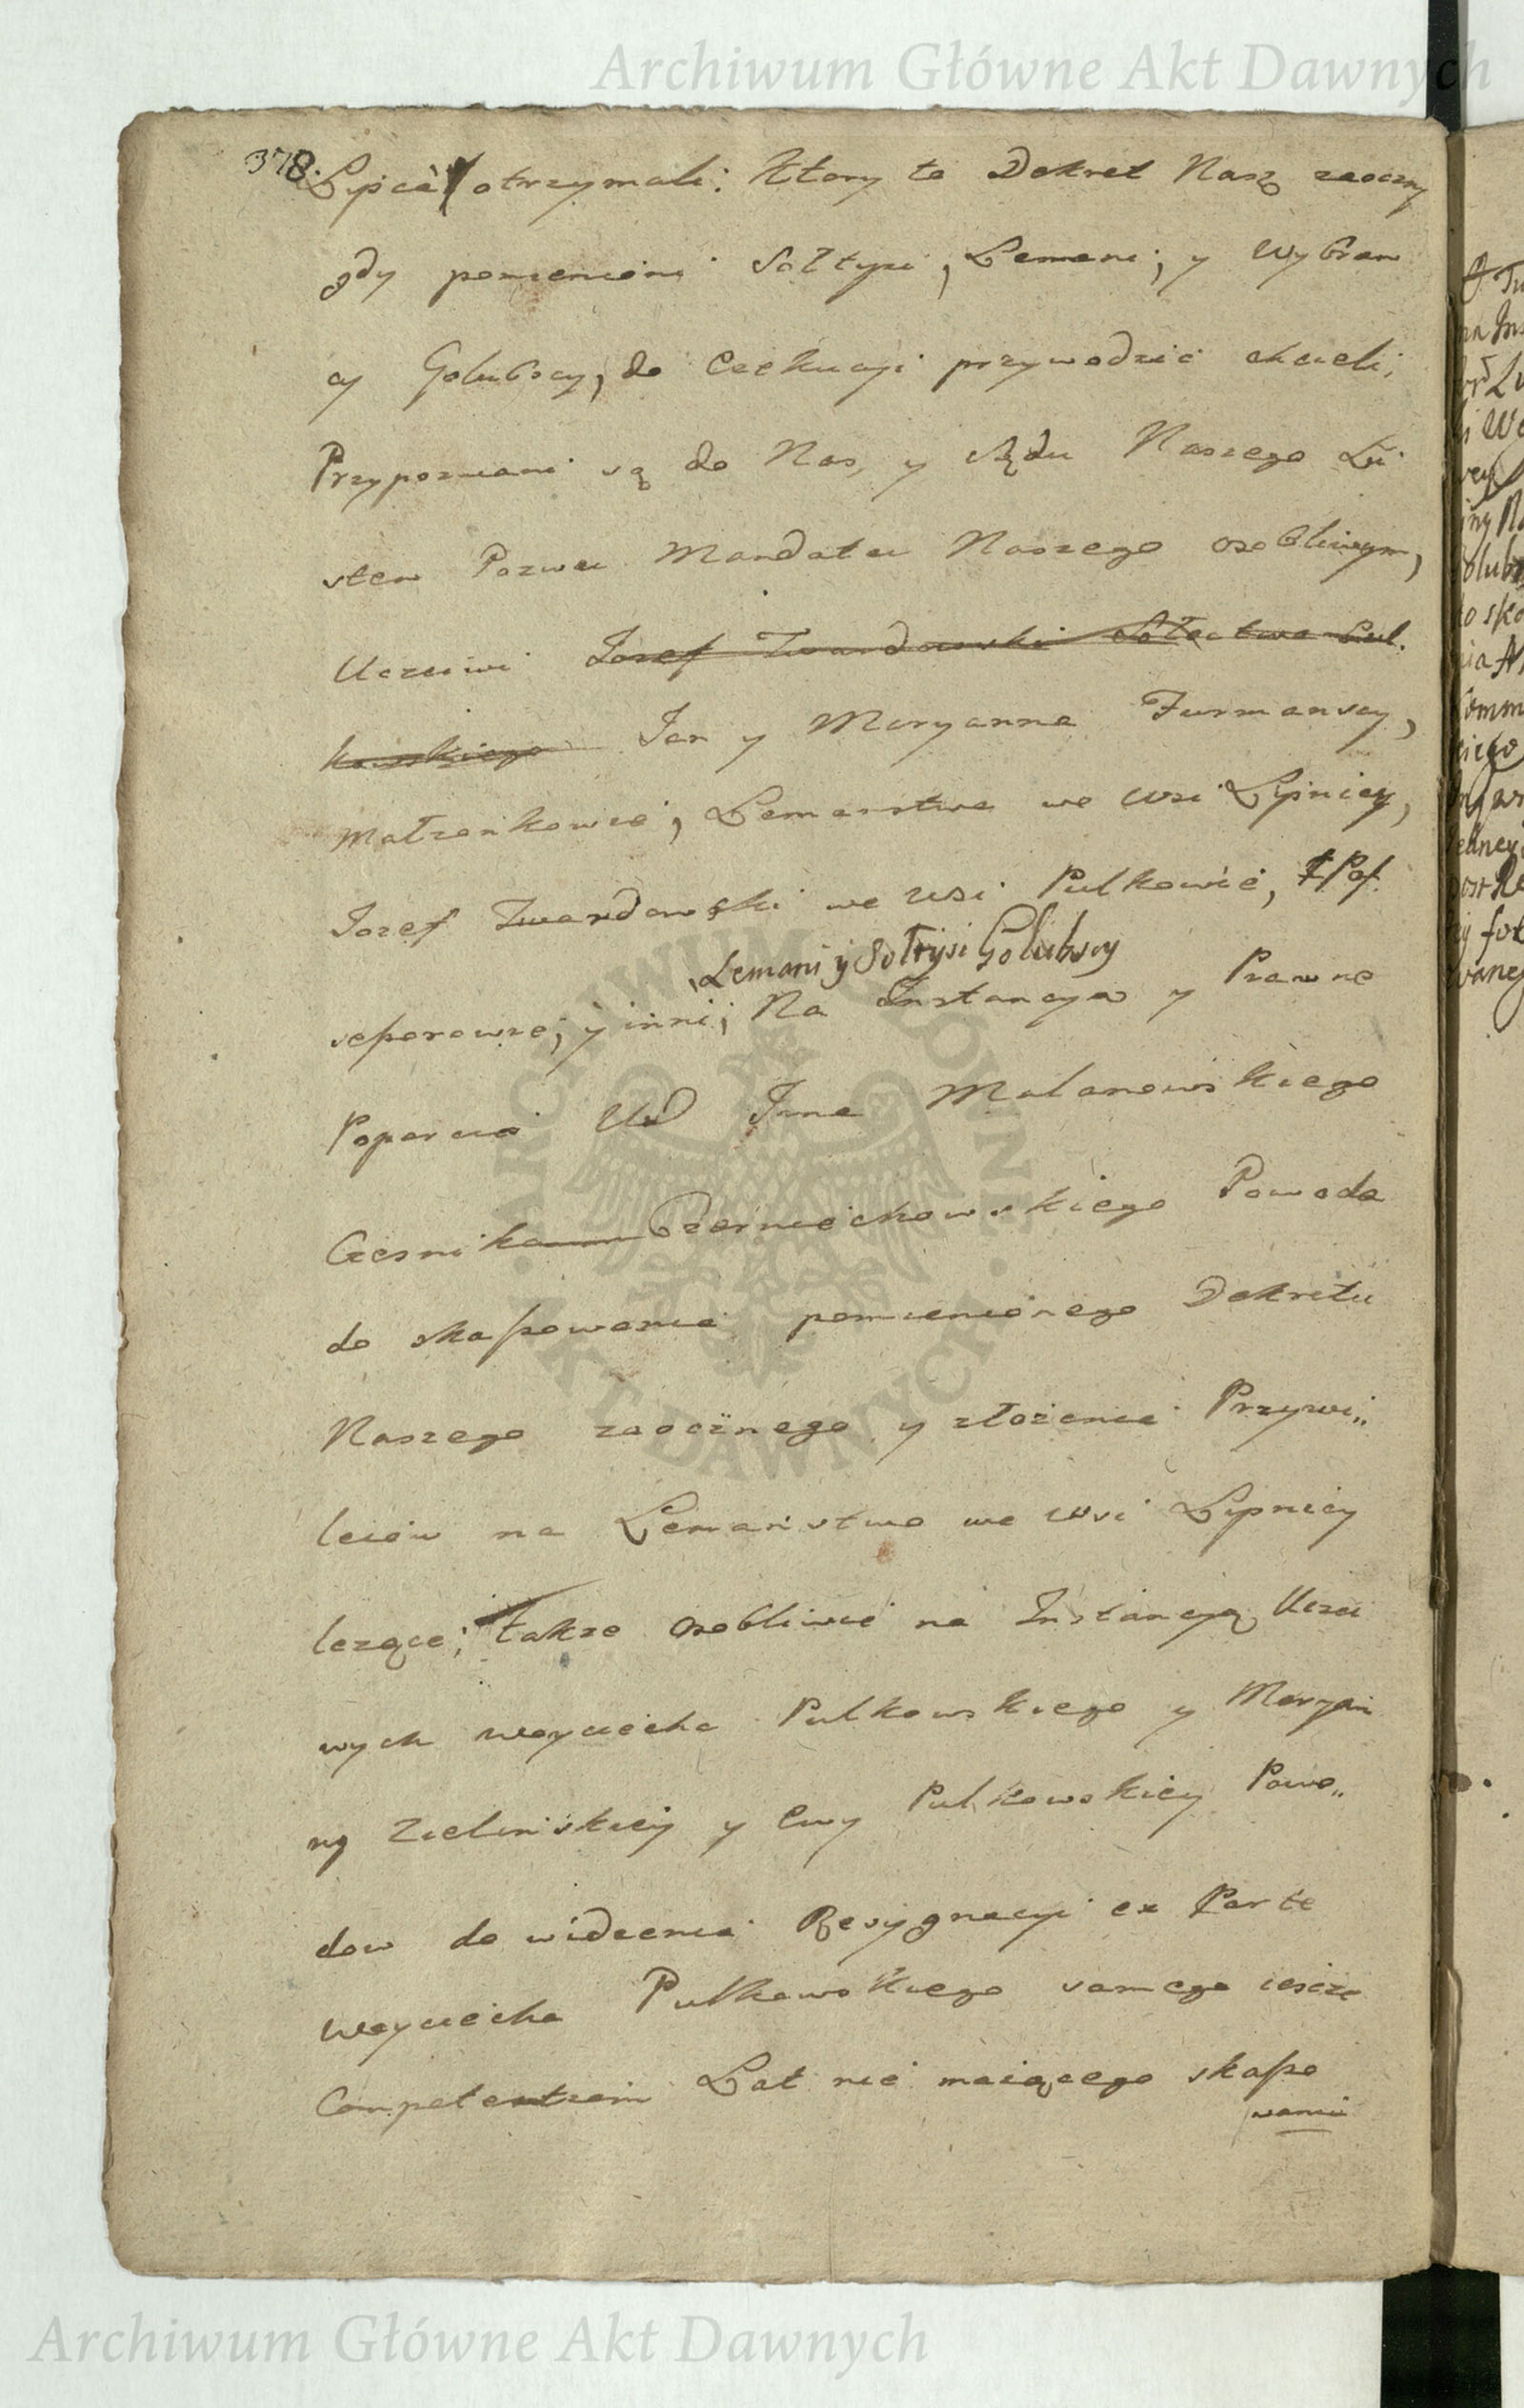 Archiwum Główne Akt Dawnych
378.
Lipca otrzymali: Ktory to Dekret Nasz zaoczny
gdy pomienieni Soltysi, Lemani, y Wybran
cy Golubscy, do Exekucyi przywodzić chcieli;
Przypozwani są do Nas, y Sądu Naszego Li
stem Pozwu Mandatu Naszego osobliwym,
Uczciwi Jozef Twardowski Sołectwa Pul
kowskiego Jan y Maryanna Furmanscy,
Małżonkowie, Lemanstwa we Wsi Lipnicy,
Jozef Twardowski we Wsi Pulkowie, Pos
Lemani y Sołtysi Golubscy
sessorowie, y inni, Na Instancya y Prawne
Poparcia Ur Jana Malanowskiego
Czesnika Czerniechowskiego Powoda
do skassowania pomienionego Dekretu
Naszego zaocznego y złożenia Przywi„
leiow na Lemaństwo we wsi Lipnicy
lezące; także osobliwie na Instancyą Uczci
wych Woyciecha Pulkowskiego y Maryan
ny Zielinskiey y Ewy Pulkowskiey Powo„
dow do widzenia Resygnacyi ex Parte
Woyciecha Pulkowskiego samego ieszcze
Lat nie maiącego skasso
wania
ARCHIWUM GŁÓWNE
AKT DAWNYCH
Archiwum Główne Akt Dawnych